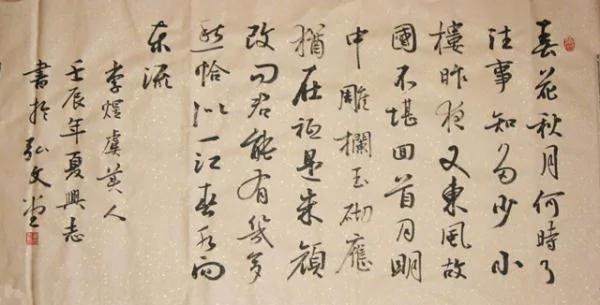 春花秋月何時了
往事知多少小
樓昨夜又東風故
國不堪回首月明
中雕欄玉砌應
猶在祗是朱顏
改問君能有幾多
愁恰似一江春水向
东流
李煜虞美人
壬辰年夏興志
書於弘文堂